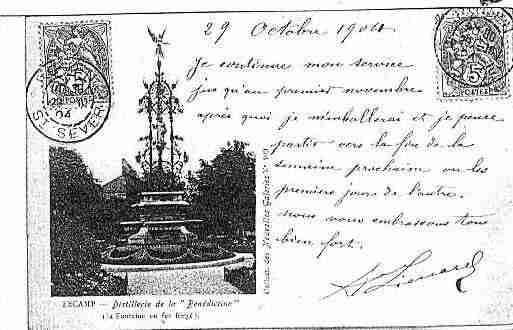 29 Octobre 1904
Je continue mon service
jusqu'au premier novembre
après quoi je m'emballerai et je pense
partir vers la fin de la
semaine prochaine ou les
premiers jours de l'autre.
nous vous embrassons tous
bien fort.
ST SEVERIN
04
5
POSTES
Nouvelles Galeries
FECAMP — Distillerie de la "Bénédictine"
(La Fontaine en fer forgé).